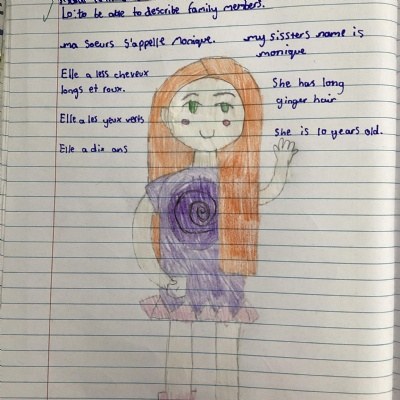 Lo: to be able to describe family members.
ma soeurs s'appelle Monique.
my sissters name is
monique
Elle a less cheveux
longs et roux.
She has long
ginger hair
Elle a les yeux verts
She is 10 years old.
Elle a dix ans